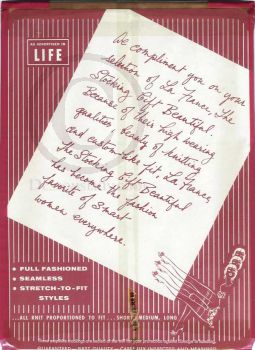 AS ADVERTISED IN
LIFE
We compliment you on your
selection of La France, The
Stocking Of Beautiful.
Because of their high wearing
qualities, beauty of knitting
and custom-like fit, La France,
The Stocking Of Beautiful
has become the fashion
favorite of smart
women everywhere.
• FULL FASHIONED
• SEAMLESS
• STRETCH-TO-FIT
STYLES
...ALL KNIT PROPORTIONED TO FIT...SHORT, MEDIUM, LONG